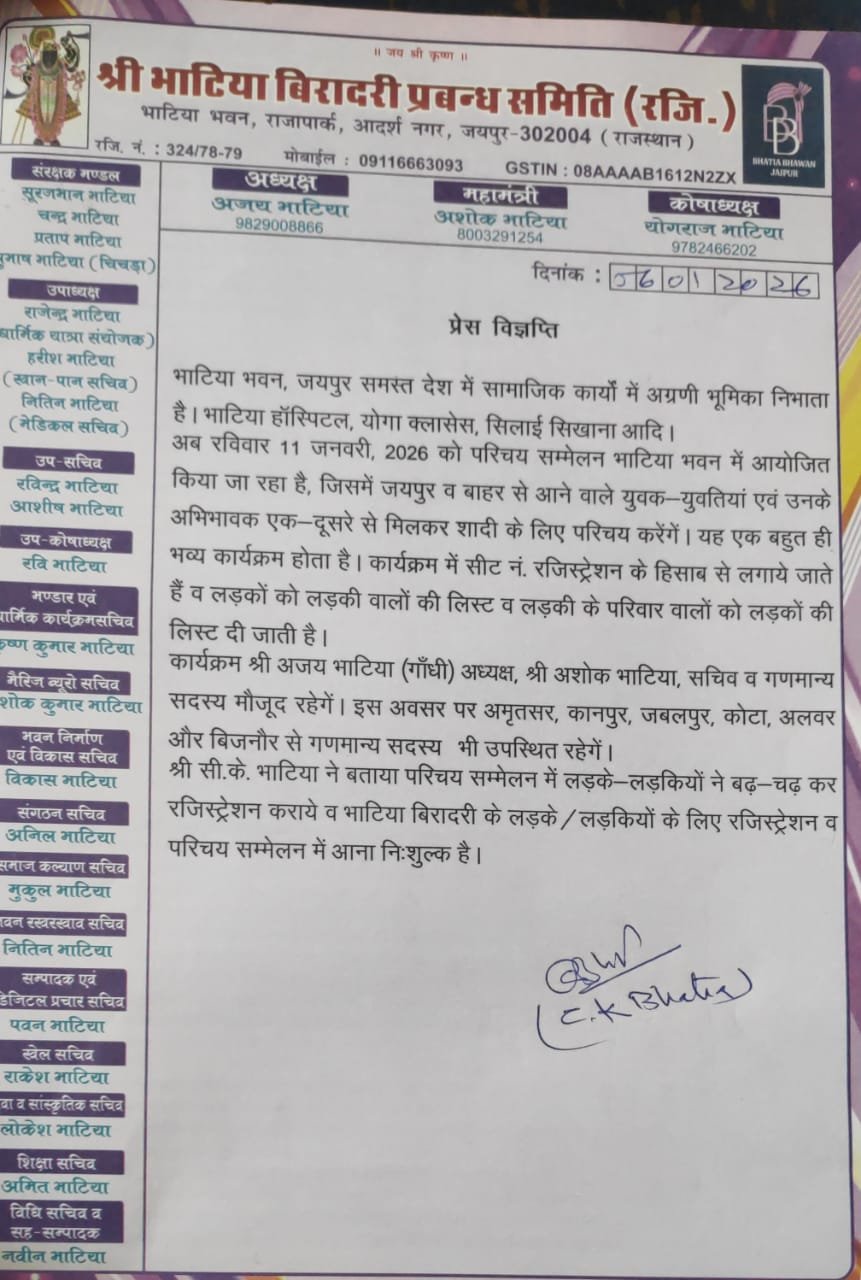 ॥ जय श्री कृष्ण ॥
श्री भाटिया बिरादरी प्रबन्ध समिति (रजि.)
भाटिया भवन, राजापार्क, आदर्श नगर, जयपुर-302004 ( राजस्थान )
रजि. नं. : 324/78-79 मोबाईल : 09116663093 GSTIN : 08AAAAB1612N2ZX
BHATIA BHAWAN
JAIPUR
अध्यक्ष
अजय भाटिया
9829008866
महामंत्री
अशोक भाटिया
8003291254
कोषाध्यक्ष
योगराज भाटिया
9782466202
संरक्षक मण्डल
सूरजभान भाटिया
चन्द्र भाटिया
प्रताप भाटिया
भाटिया (चिचड़ा)
उपाध्यक्ष
राजेन्द्र भाटिया
यात्रा संयोजक)
हरीश भाटिया
(खान-पान सचिव)
नितिन भाटिया
(मेडिकल सचिव)
उप-सचिव
रविन्द्र भाटिया
आशीष भाटिया
उप-कोषाध्यक्ष
रवि भाटिया
भण्डार एवं
कार्यक्रमसचिव
कुमार भाटिया
मैरिज ब्यूरो सचिव
कुमार भाटिया
भवन निर्माण
एवं विकास सचिव
विकास भाटिया
संगठन सचिव
अनिल भाटिया
कल्याण सचिव
मुकुल भाटिया
रखरखाव सचिव
नितिन भाटिया
सम्पादक एवं
प्रचार सचिव
पवन भाटिया
खेल सचिव
राकेश भाटिया
व सांस्कृतिक सचिव
लोकेश भाटिया
शिक्षा सचिव
अमित भाटिया
विधि सचिव व
सह-सम्पादक
नवीन भाटिया
दिनांक : 06012026
प्रेस विज्ञप्ति
भाटिया भवन, जयपुर समस्त देश में सामाजिक कार्यों में अग्रणी भूमिका निभाता
है। भाटिया हॉस्पिटल, योगा क्लासेस, सिलाई सिखाना आदि।
अब रविवार 11 जनवरी, 2026 को परिचय सम्मेलन भाटिया भवन में आयोजित
किया जा रहा है, जिसमें जयपुर व बाहर से आने वाले युवक–युवतियां एवं उनके
अभिभावक एक–दूसरे से मिलकर शादी के लिए परिचय करेंगें। यह एक बहुत ही
भव्य कार्यक्रम होता है। कार्यक्रम में सीट नं. रजिस्ट्रेशन के हिसाब से लगाये जाते
हैं व लड़कों को लड़की वालों की लिस्ट व लड़की के परिवार वालों को लड़कों की
लिस्ट दी जाती है।
कार्यक्रम श्री अजय भाटिया (गाँधी) अध्यक्ष, श्री अशोक भाटिया, सचिव व गणमान्य
सदस्य मौजूद रहेगें। इस अवसर पर अमृतसर, कानपुर, जबलपुर, कोटा, अलवर
और बिजनौर से गणमान्य सदस्य भी उपस्थित रहेगें।
श्री सी.के. भाटिया ने बताया परिचय सम्मेलन में लड़के–लड़कियों ने बढ़–चढ़ कर
रजिस्ट्रेशन कराये व भाटिया बिरादरी के लड़के/लड़कियों के लिए रजिस्ट्रेशन व
परिचय सम्मेलन में आना निःशुल्क है।
(C.K Bhatia)